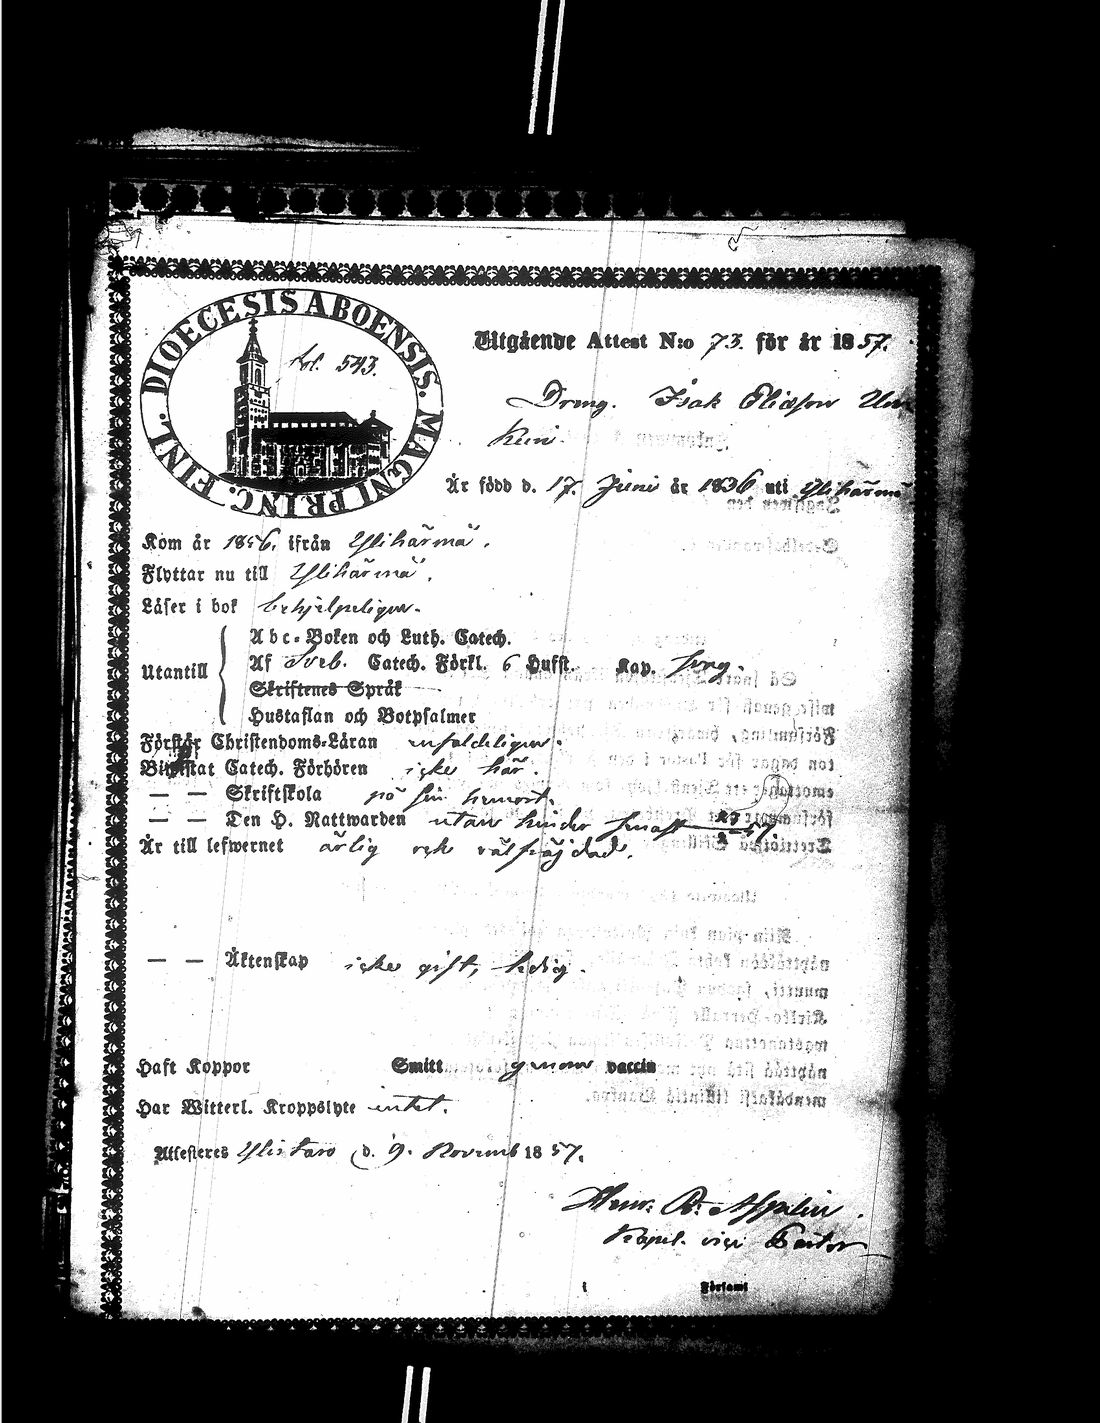 DIOECESIS ABOENSIS. MAGNI PRINC. FINL.
fol. 543.
Utgående Attest N:o 73. för år 1857.
Dreng. Isak Eliasson
Är född d. 17. Juni år 1836 uti Ylihärmä
Kom år 1856. ifrån Ylihärmä.
Flyttar nu till Ylihärmä.
Läser i bok behjelpeligen.
Utantill
Abc-Boken och Luth. Catech.
Af Sveb. Catech. Förkl. 6 Hufst. Kap.
Skriftenes Språk
Hustaflan och Botpsalmer
Förstår Christendoms-Läran enfaldeligen.
Bitwistat Catech. Förhören icke här.
— — Skriftskola på sin hemort.
— — Den H. Nattwarden utan hinder senast
Är till lefwernet ärlig och välfräjdad.
— — Äktenskap icke gift, ledig.
Haft Koppor Smitt genom vaccin
Har Witterl. Kroppslyte intet.
Attesteres Ylistaro d. 9. Novemb 1857.
Henr. R. Asplin.
Kapel. vice Pastor
Församl